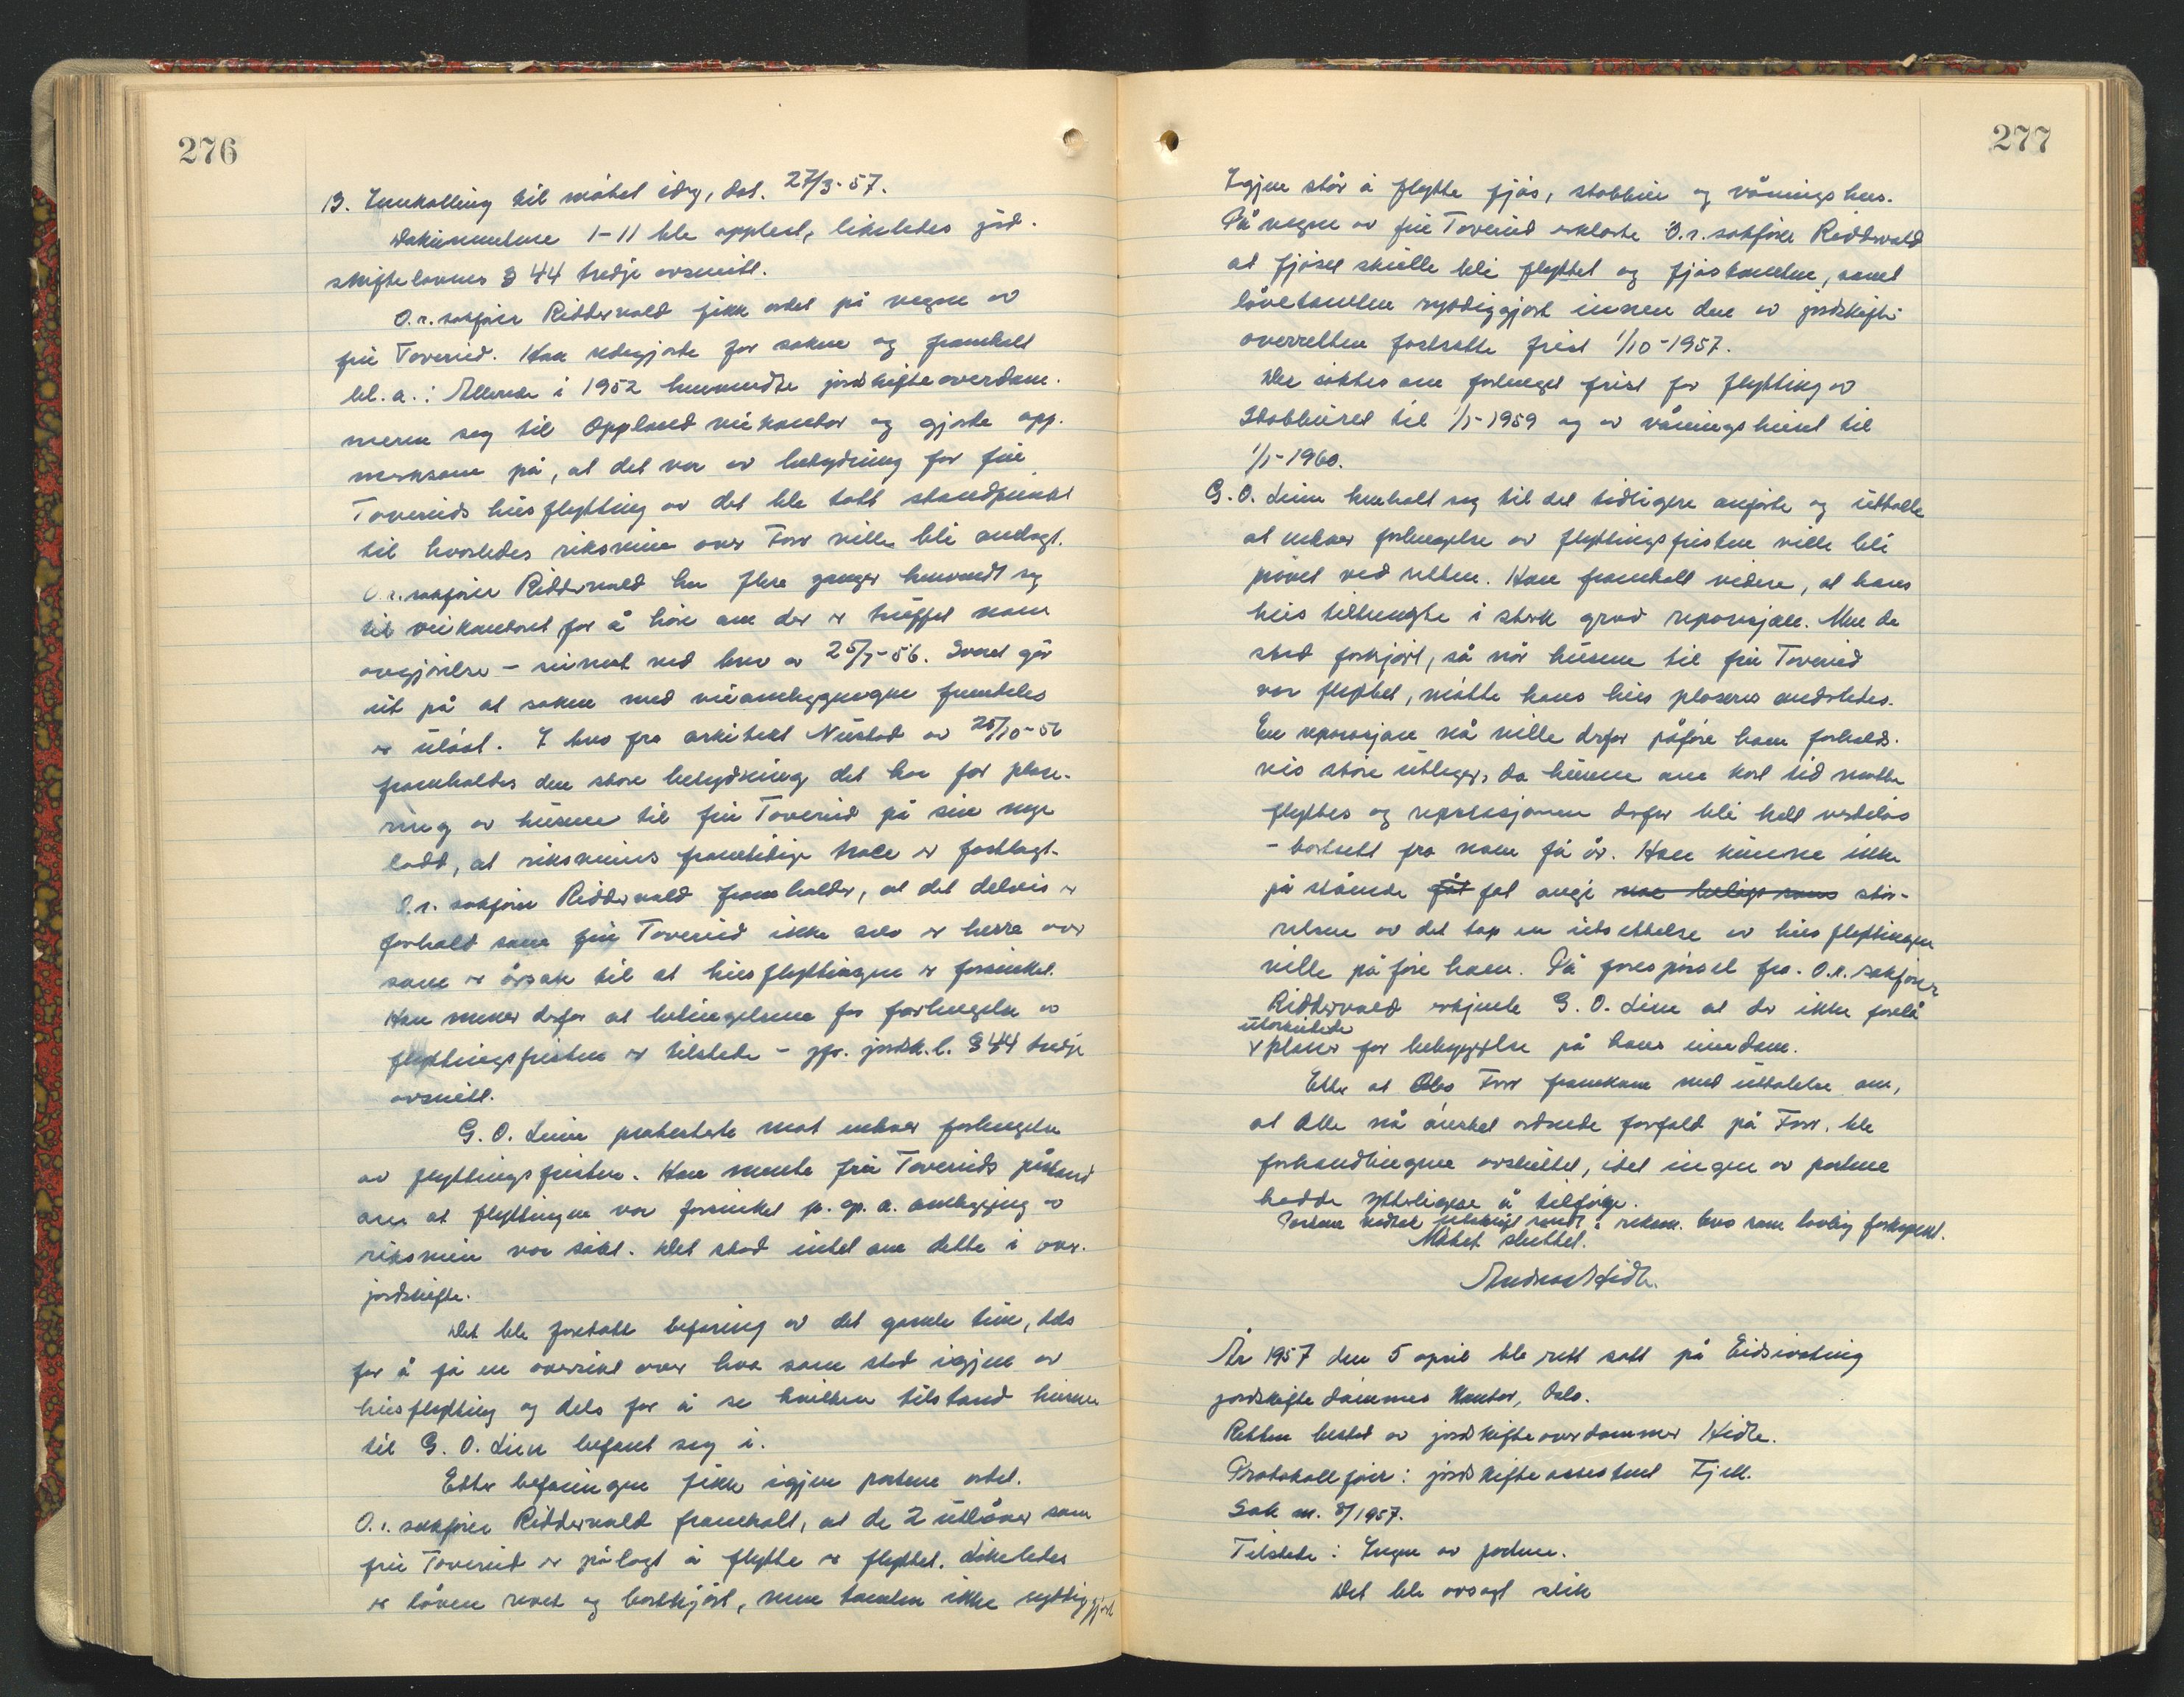 276
13. Innkalling til møtet idag, dat. 27/3-57.
Dokumentene 1-11 ble opplest, likeledes jord-
skiftelovens § 44 tredje avsnitt.
O.r.sakfører Riddervold fikk ordet på vegne av
fru Toverud. Han redegjorde for saken og framholdt
bl.a.: Allerede i 1952 henvendte jordskifteoverdom-
meren seg til Oppland veikontor og gjorde opp-
merksom på, at det var av betydning for fru
Toveruds husflytting at det ble tatt standpunkt
til hvorledes riksveien over Forr ville bli anlagt.
O.r.sakfører Riddervold har flere ganger henvendt seg
til veikontoret for å høre om der er truffet noen
avgjørelse - seinest ved brev av 25/7-56. Svaret går
ut på at saken med veiombyggingen fremdeles
er uløst. I brev fra arkitekt Nustad av 25/10-56
framholdes den store betydning det har for plase-
ring av husene til fru Toverud på sin nye
lodd, at riksveiens framtidige trace er fastlagt.
O.r. sakfører Riddervold framholder, at det delvis er
forhold som fru Toverud ikke selv er herre over
som er årsak til at husflyttingen er forsinket.
Han mener derfor at betingelsene for forlengelse av
flyttingsfristen er tilstede - jfr. jordsk.l. § 44 tredje
avsnitt.
G. O. Lien protesterte mot enhver forlengelse
av flyttingsfristen. Han mente fru Toveruds påstand
om at flyttingen var forsinket p. gr. a. ombygging av
riksveien var søkt. Det stod intet om dette i over-
jordskifte.
Det ble foretatt befaring av det gamle tun, dels
for å få en oversikt over hva som stod igjen av
husflytting og dels for å se hvilken tilstand husene
til G. O. Lien befant seg i.
Etter befaringen fikk igjen partene ordet.
O.r. sakfører Riddervold framholdt, at de 2 utløer som
fru Toverud er pålagt å flytte er flyttet. Likeledes
er låven revet og bortkjørt, men tomten ikke ryddiggjort
277
Igjen står å flytte fjøs, stabbur og våningshus.
På vegne av fru Toverud erklærte O.r.sakfører Riddervold
at fjøset skulle bli flyttet og fjøstomten, samt
låvetomten ryddiggjort innen den av jordskifte-
overretten fastsatte frist 1/10-1957.
Der søktes om forlenget frist for flytting av
stabburet til 1/7-1959 og av våningshuset til
1/7-1960.
G. O. Lien henholdt seg til det tidligere anførte og uttalte
at enhver forlengelse av flyttingsfristen ville bli
prøvet ved retten. Han framholdt videre, at hans
hus tiltrengte i sterk grad reparasjon. Men de
stod forkjørt, så når husene til fru Toverud
var flyttet, måtte hans hus plaseres andsteds.
En reparasjon nå ville derfor påføre ham forholds-
vis store utlegg, da husene om kort tid måtte
flyttes og reparasjonen derfor bli helt verdiløs
- bortsett fra noen få år. Han kunne ikke
på stående fot angi stør-
relsen av det tap en utsettelse av husflyttingen
ville påføre ham. På forespørsel fra O.r. sakfører
Riddervold erkjente G. O. Lien at der ikke forelå
utarbeidede
planer for bebyggelse på hans eiendom.
Etter at Forr framkom med uttalelse om,
at alle nå ønsket ordnede forhold på Forr, ble
forhandlingene avsluttet, idet ingen av partene
hadde ytterligere å tilføye.
Partene vedtok utskrift sendt i rekom. brev som lovlig forkynt.
Møtet sluttet.
Andreas Hidle.
År 1957 den 5 april ble rett satt på Eidsivating
jordskiftedømmes kontor, Oslo.
Retten bestod av jordskifteoverdommer Hidle.
Protokollfører: jordskifteassistent Fjell.
Sak nr. 8/1957.
Tilstede: Ingen av partene.
Det ble avsagt slik